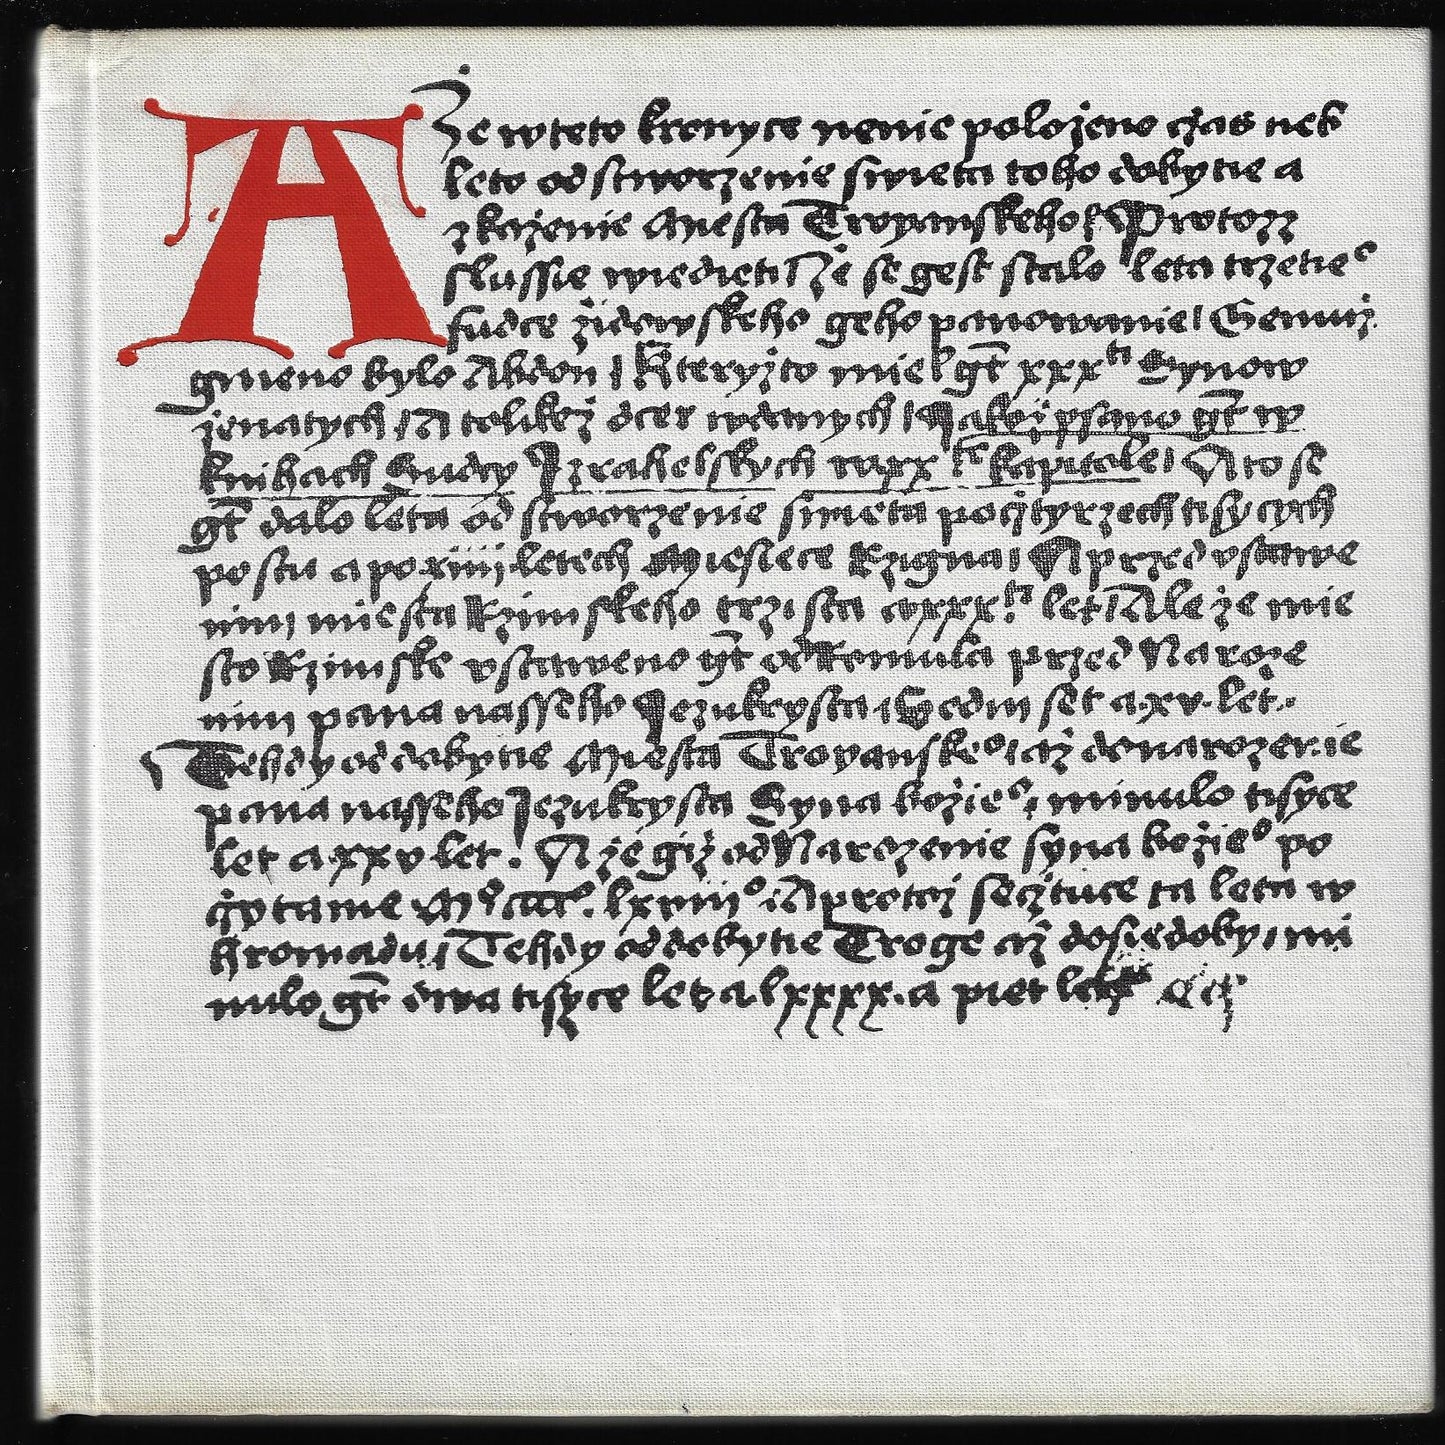 A Že w teto kronyce nenie polozeno czas neb
leto od stworzenie swieta toho dobytie a
zkazenie Miesta Troyanskeho Protozz
slussie wiedieti Že se gest stalo leta trzetieᵒ
sudce židowskeho geho panowanie Gemuž
gmeno bylo Abdon Kteryzto miel gt xxxti Synow
zenatych A tolikez dcer wdanych Jakož psano gt w
knihach Sudcy Izrahelskych w kapitole A to se
gt dalo leta od stworzenie swieta po cžtyrzech tisycych
po stu a po xiiii letech Miesiece Rzigna A przed vstawe
nim miesta Rzimskeho trzi sta let Ale že mie
sto Rzimske vstaweno gt od Romula przed Naroze
nim pana nasseho Jezukrysta Sedm set a xv let
Tehdy od dobytie Miesta Troyanskeᵒ až do narozenie
pana nasseho Jezukrysta Syna božieᵒ minulo tisyce
let a xxv let. A že giž od Narozenie syna božieᵒ po
cžytame lxviiiᵒ A protož secžtuce ta leta w
hromadu Tehdy od dobytie Troge až do sie doby mi
nulo gt dwa tisyce let a lxxxx a piet let